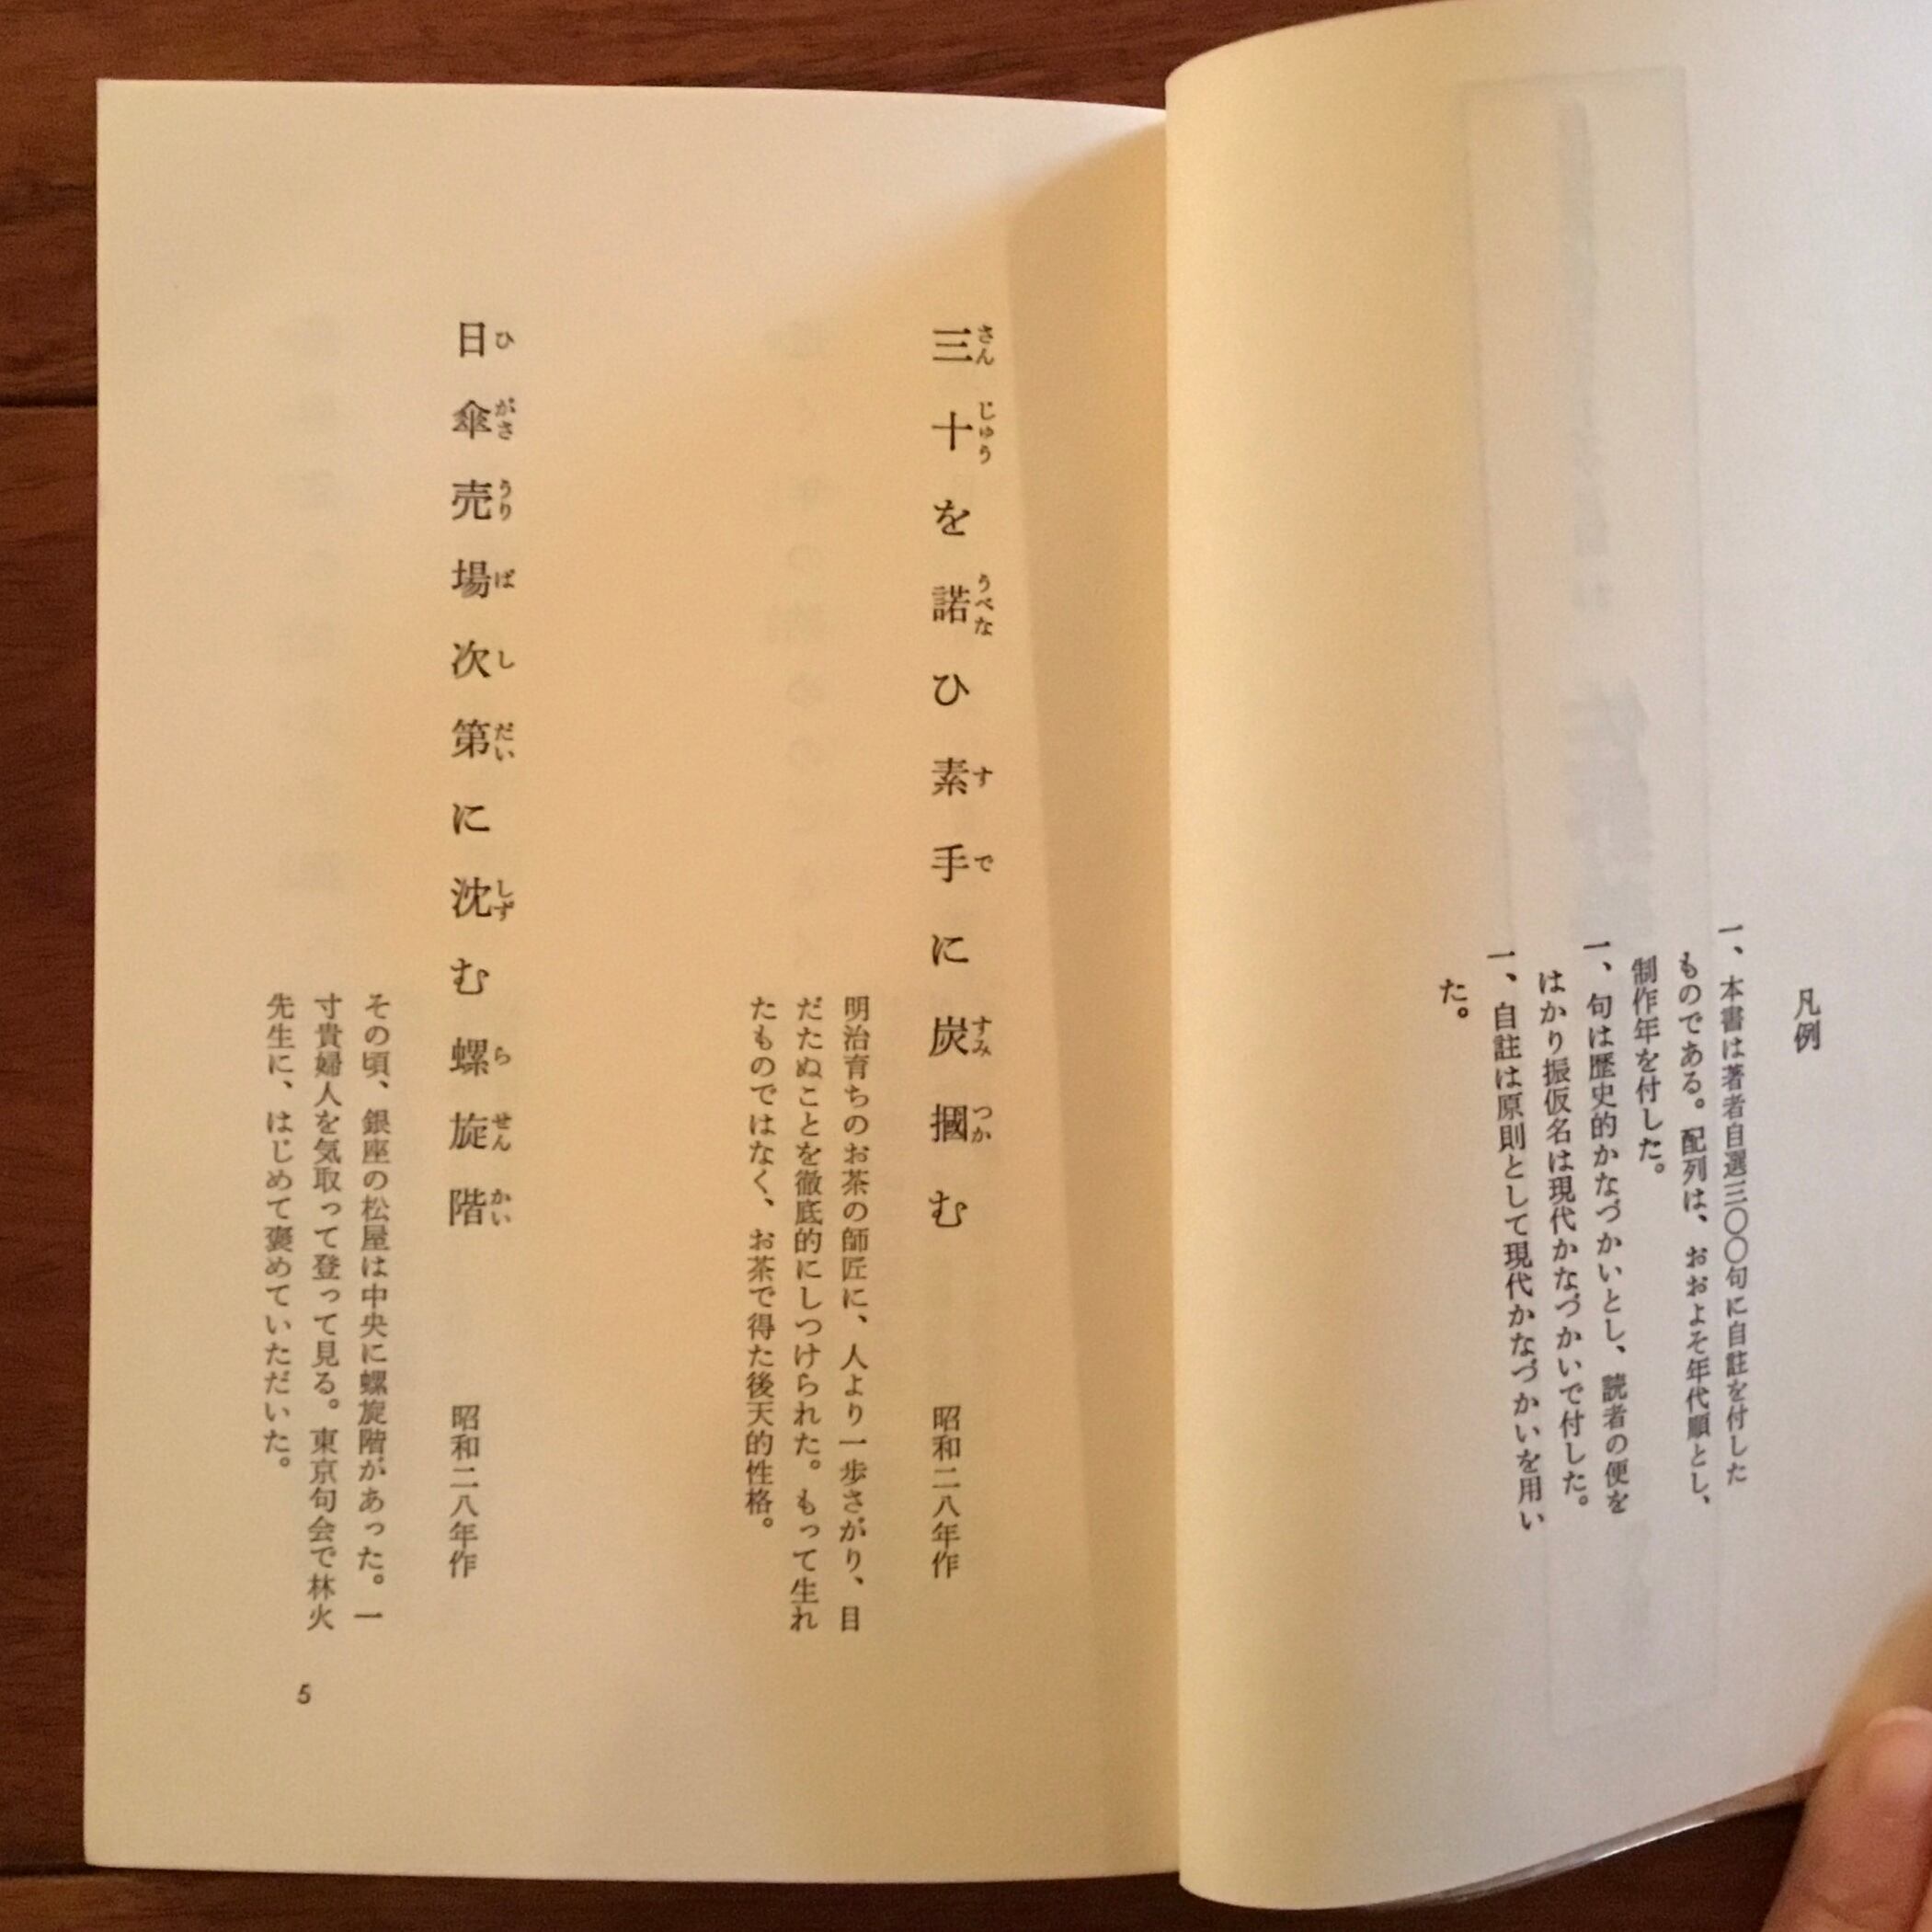 凡例
一、本書は著者自選三〇〇句に自註を付した
ものである。配列は、おおよそ年代順とし、
制作年を付した。
一、句は歴史的かなづかいとし、読者の便を
はかり振仮名は現代かなづかいで付した。
一、自註は原則として現代かなづかいを用い
た。
三十を諾ひ素手に炭摑む
さんじゅう うべな すで すみつか
昭和二八年作
明治育ちのお茶の師匠に、人より一歩さがり、目
だたぬことを徹底的にしつけられた。もって生れ
たものではなく、お茶で得た後天的性格。
日傘売場次第に沈む螺旋階
ひがさうりばしだい しず らせんかい
昭和二八年作
その頃、銀座の松屋は中央に螺旋階があった。一
寸貴婦人を気取って登って見る。東京句会で林火
先生に、はじめて褒めていただいた。
5